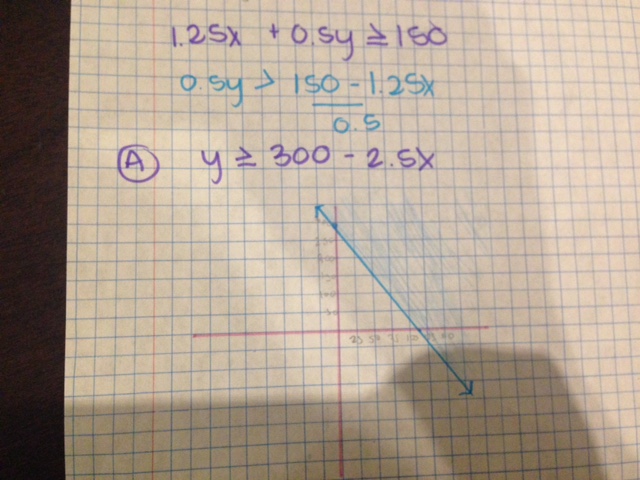 1.25x + 0.5y ≥ 150
0.5y > 150 - 1.25x
0.5
A y ≥ 300 - 2.5x
50
25 50 75 100